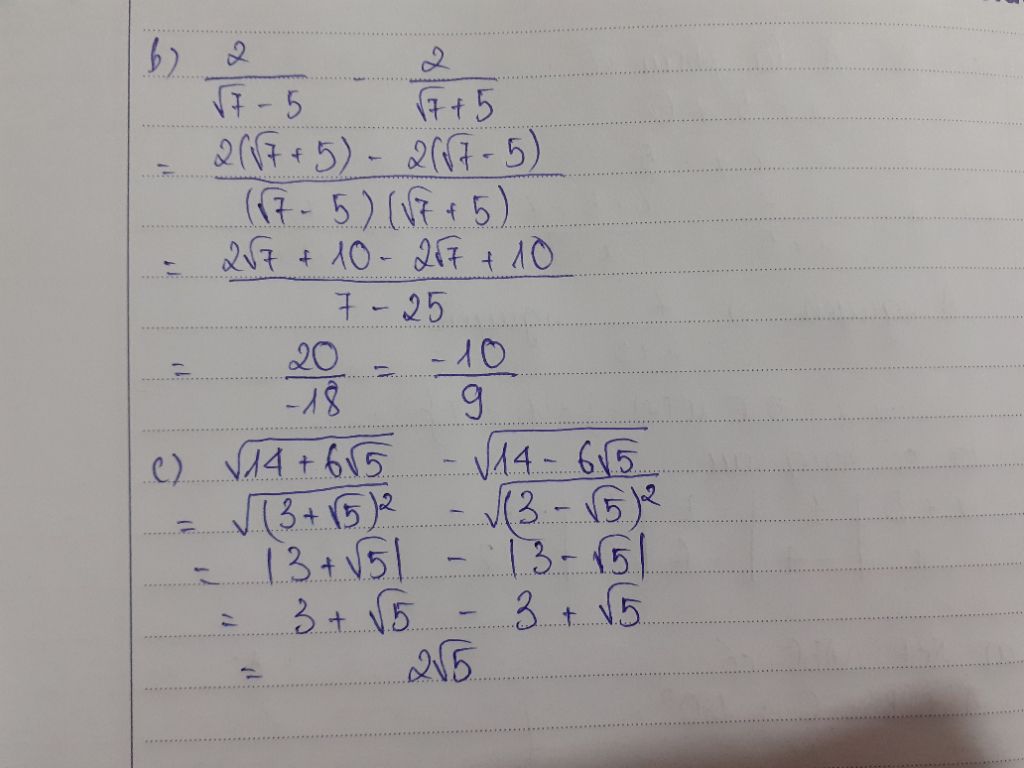 b) 2/(√7 - 5) - 2/(√7 + 5)
= (2(√7 + 5) - 2(√7 - 5))/((√7 - 5)(√7 + 5))
= (2√7 + 10 - 2√7 + 10)/(7 - 25)
= 20/-18 = -10/9
c) √(14 + 6√5) - √(14 - 6√5)
= √((3 + √5)²) - √((3 - √5)²)
= |3 + √5| - |3 - √5|
= 3 + √5 - 3 + √5
= 2√5